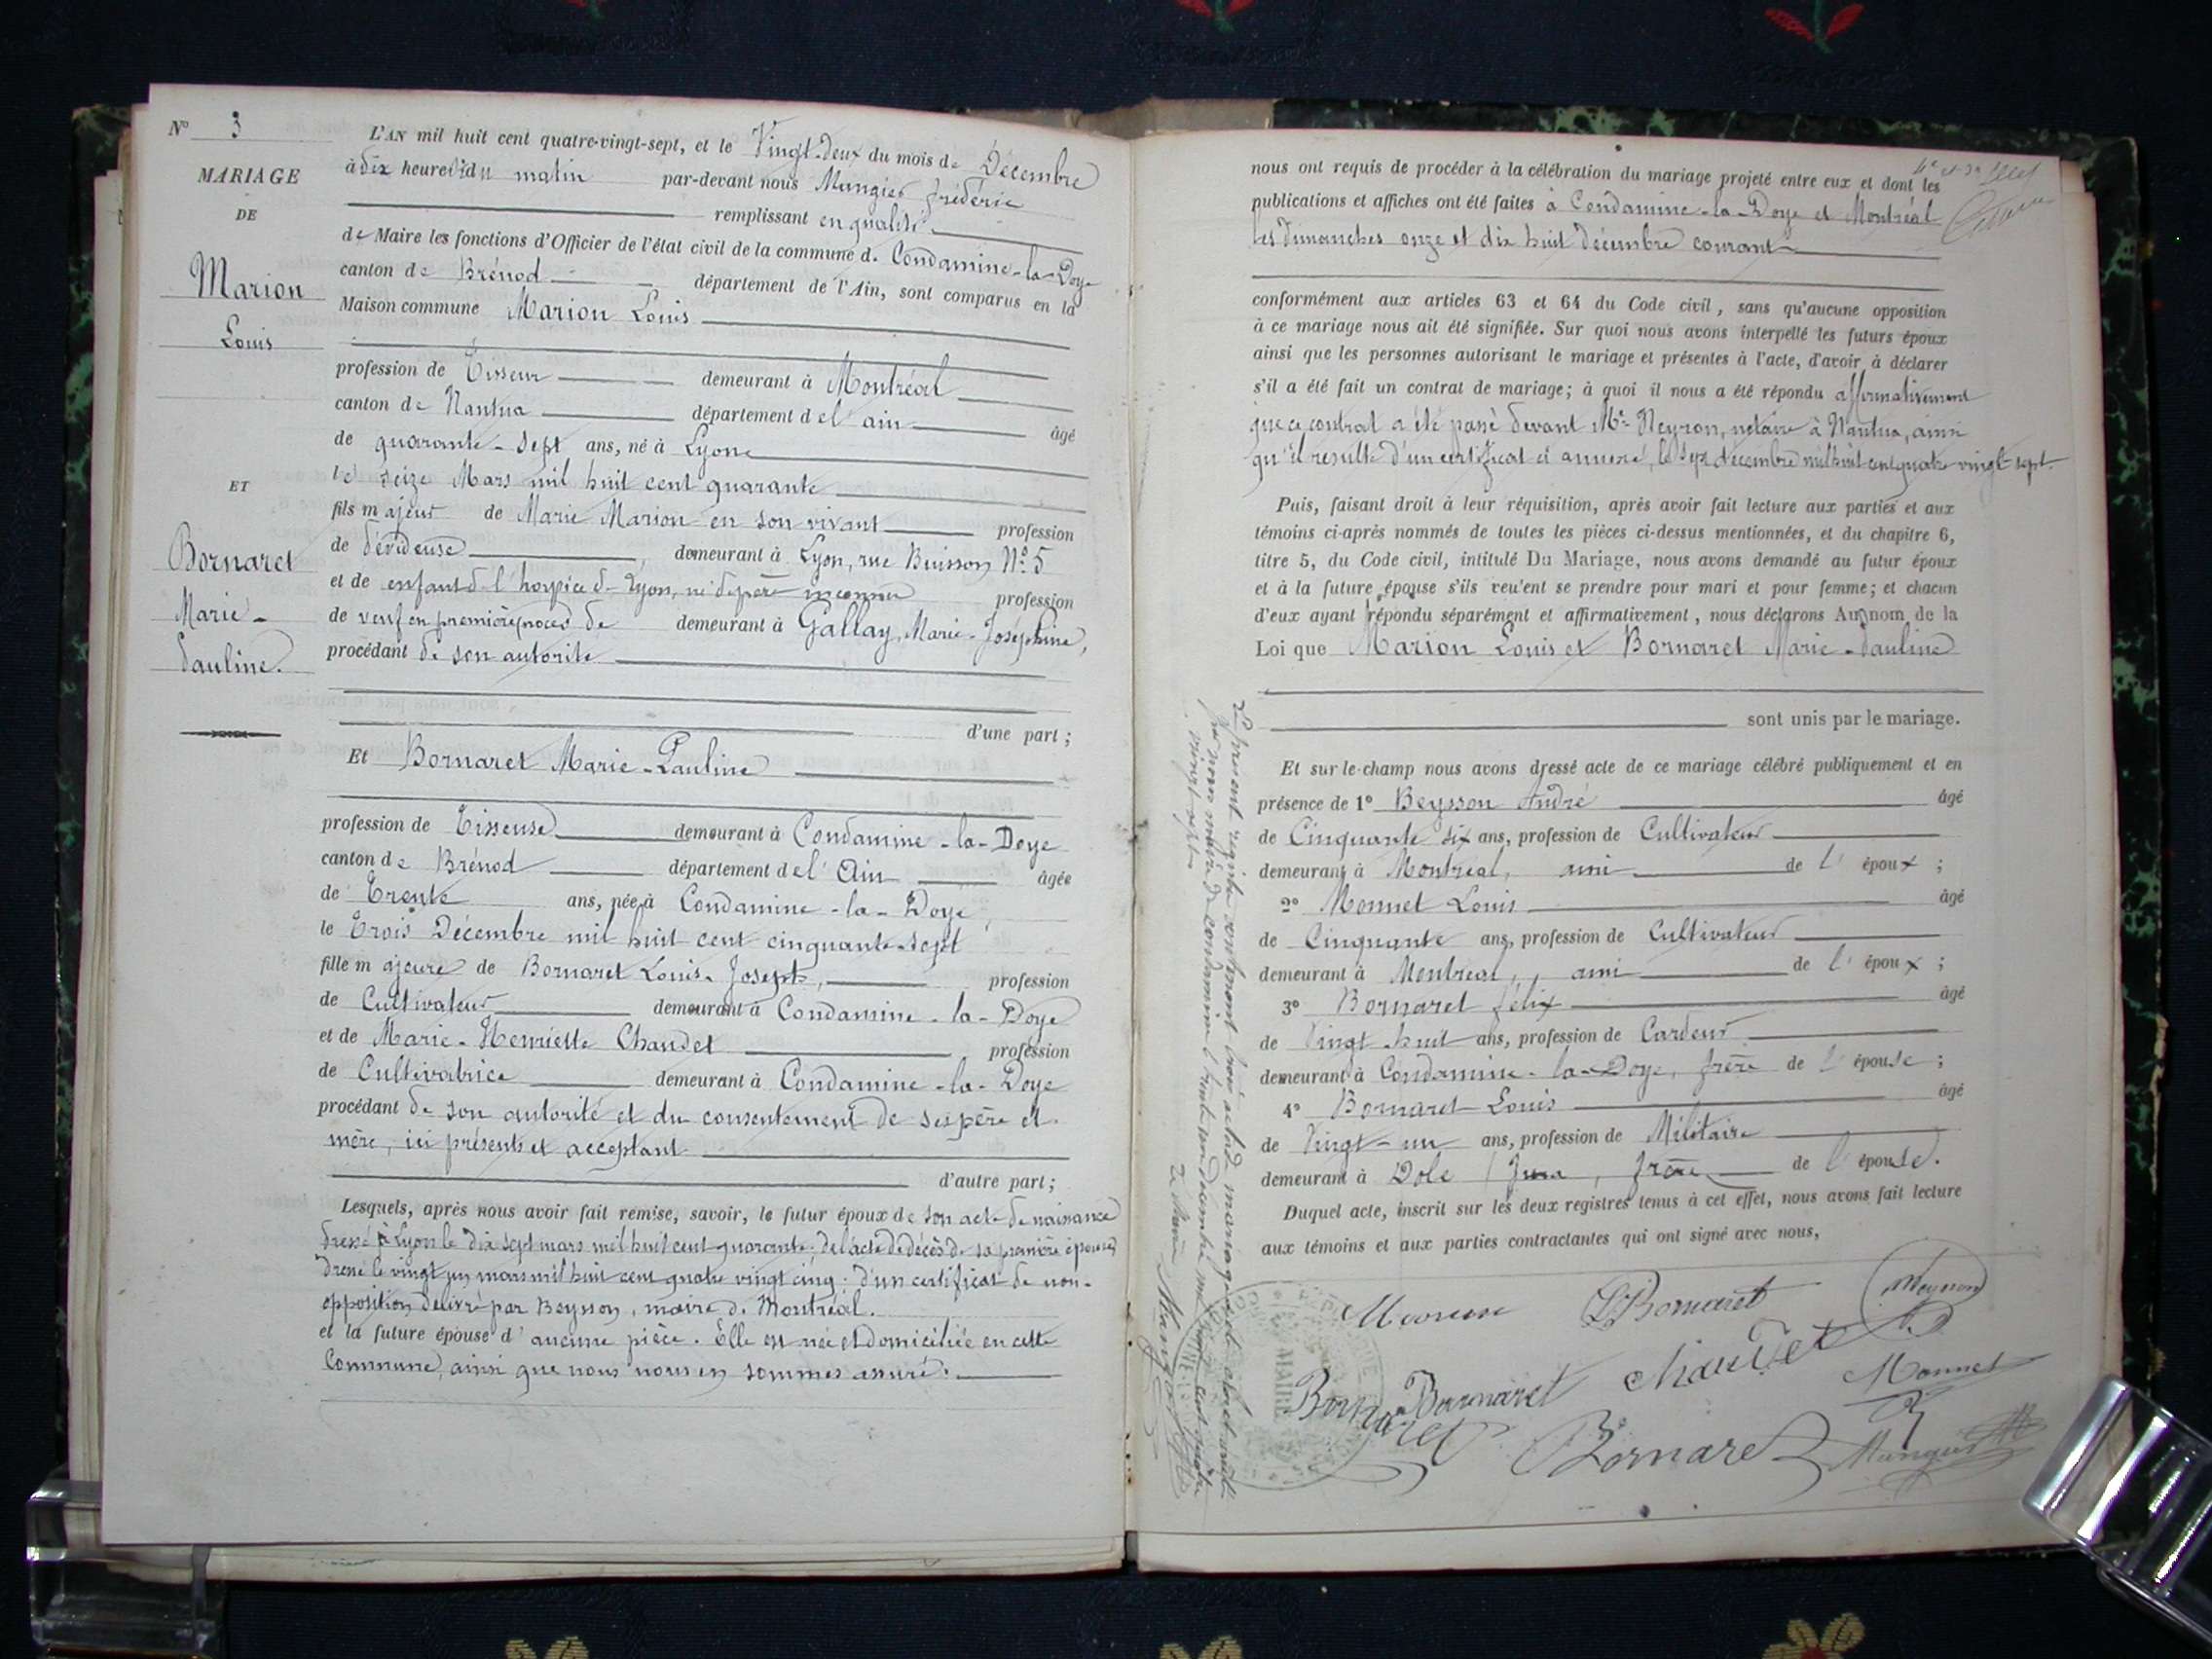 N° 3
MARIAGE
DE
Marion
Louis
ET
Bornaret
Marie-
Pauline.
L'AN mil huit cent quatre-vingt-sept, et le Vingt-deux du mois de Décembre
à dix heures du matin par-devant nous Mangier frédéric
remplissant en qualité
de Maire les fonctions d'Officier de l'état civil de la commune de Condamine-la-Doye
canton de Brénod département de l'Ain, sont comparus en la
Maison commune Marion Louis
profession de Tisseur demeurant à Montréal
canton de Nantua département de l'ain âgé
de quarante-sept ans, né à Lyon
le seize Mars mil huit cent quarante
fils majeur de Marie Marion en son vivant profession
de dévideuse demeurant à Lyon, rue Buisson N° 5
et de enfant de l'hospice de Lyon, né de père inconnu profession
de veuf en premières noces de demeurant à Gallay, Marie-Joséphine,
procédant de son autorité
d'une part ;
Et Bornaret Marie-Pauline
profession de Tisseuse demeurant à Condamine-la-Doye
canton de Brénod département de l'Ain âgée
de Trente ans, née à Condamine-la-Doye
le Trois Décembre mil huit cent cinquante-sept
fille majeure de Bornaret Louis-Joseph, profession
de Cultivateur demeurant à Condamine-la-Doye
et de Marie-Henriette Chaudet profession
de Cultivatrice demeurant à Condamine-la-Doye
procédant de son autorité et du consentement de ses père et
mère, ici présents et acceptant
d'autre part ;
Lesquels, après nous avoir fait remise, savoir, le futur époux de son acte de naissance
dressé à Lyon le dix sept mars mil huit cent quarante ; de l'acte de décès de sa première épouse,
dressé le vingt un mars mil huit cent quatre vingt cinq ; d'un certificat de non-
opposition délivré par Beysson, maire de Montréal.
et la future épouse d'aucune pièce. Elle est née et domiciliée en cette
Commune, ainsi que nous nous en sommes assuré.
nous ont requis de procéder à la célébration du mariage projeté entre eux et dont les
publications et affiches ont été faites à Condamine-la-Doye et Montréal
les dimanches onze et dix huit décembre courant
conformément aux articles 63 et 64 du Code civil, sans qu'aucune opposition
à ce mariage nous ait été signifiée. Sur quoi nous avons interpellé les futurs époux
ainsi que les personnes autorisant le mariage et présentes à l'acte, d'avoir à déclarer
s'il a été fait un contrat de mariage ; à quoi il nous a été répondu affirmativement
que ce contrat a été passé devant Me Neyron, notaire à Nantua, ainsi
qu'il résulte d'un certificat ci annexé, le sept décembre mil huit cent quatre vingt-sept.
Puis, faisant droit à leur réquisition, après avoir fait lecture aux parties et aux
témoins ci-après nommés de toutes les pièces ci-dessus mentionnées, et du chapitre 6,
titre 5, du Code civil, intitulé Du Mariage, nous avons demandé au futur époux
et à la future épouse s'ils veulent se prendre pour mari et pour femme ; et chacun
d'eux ayant répondu séparément et affirmativement, nous déclarons Au nom de la
Loi que Marion Louis et Bornaret Marie-Pauline
sont unis par le mariage.
Et sur-le-champ nous avons dressé acte de ce mariage célébré publiquement et en
présence de 1° Beysson André âgé
de Cinquante six ans, profession de Cultivateur
demeurant à Montréal, ami de l'époux ;
2° Monnet Louis âgé
de Cinquante ans, profession de Cultivateur
demeurant à Montréal, ami de l'époux ;
3° Bornaret félix âgé
de Vingt-huit ans, profession de Cardeur
demeurant à Condamine-la-Doye, frère de l'épouse ;
4° Bornaret Louis âgé
de Vingt-un ans, profession de Militaire
demeurant à Dole (Jura, frère de l'épouse.
Duquel acte, inscrit sur les deux registres tenus à cet effet, nous avons fait lecture
aux témoins et aux parties contractantes qui ont signé avec nous,
L Bornaret
Bornaret
Bornaret
Chaudet
Monnet
Bornaret
Mangier
Le présent registre contenant trois actes de mariage
par nous maire de Condamine
vingt-sept
Le Maire
MAIRIE